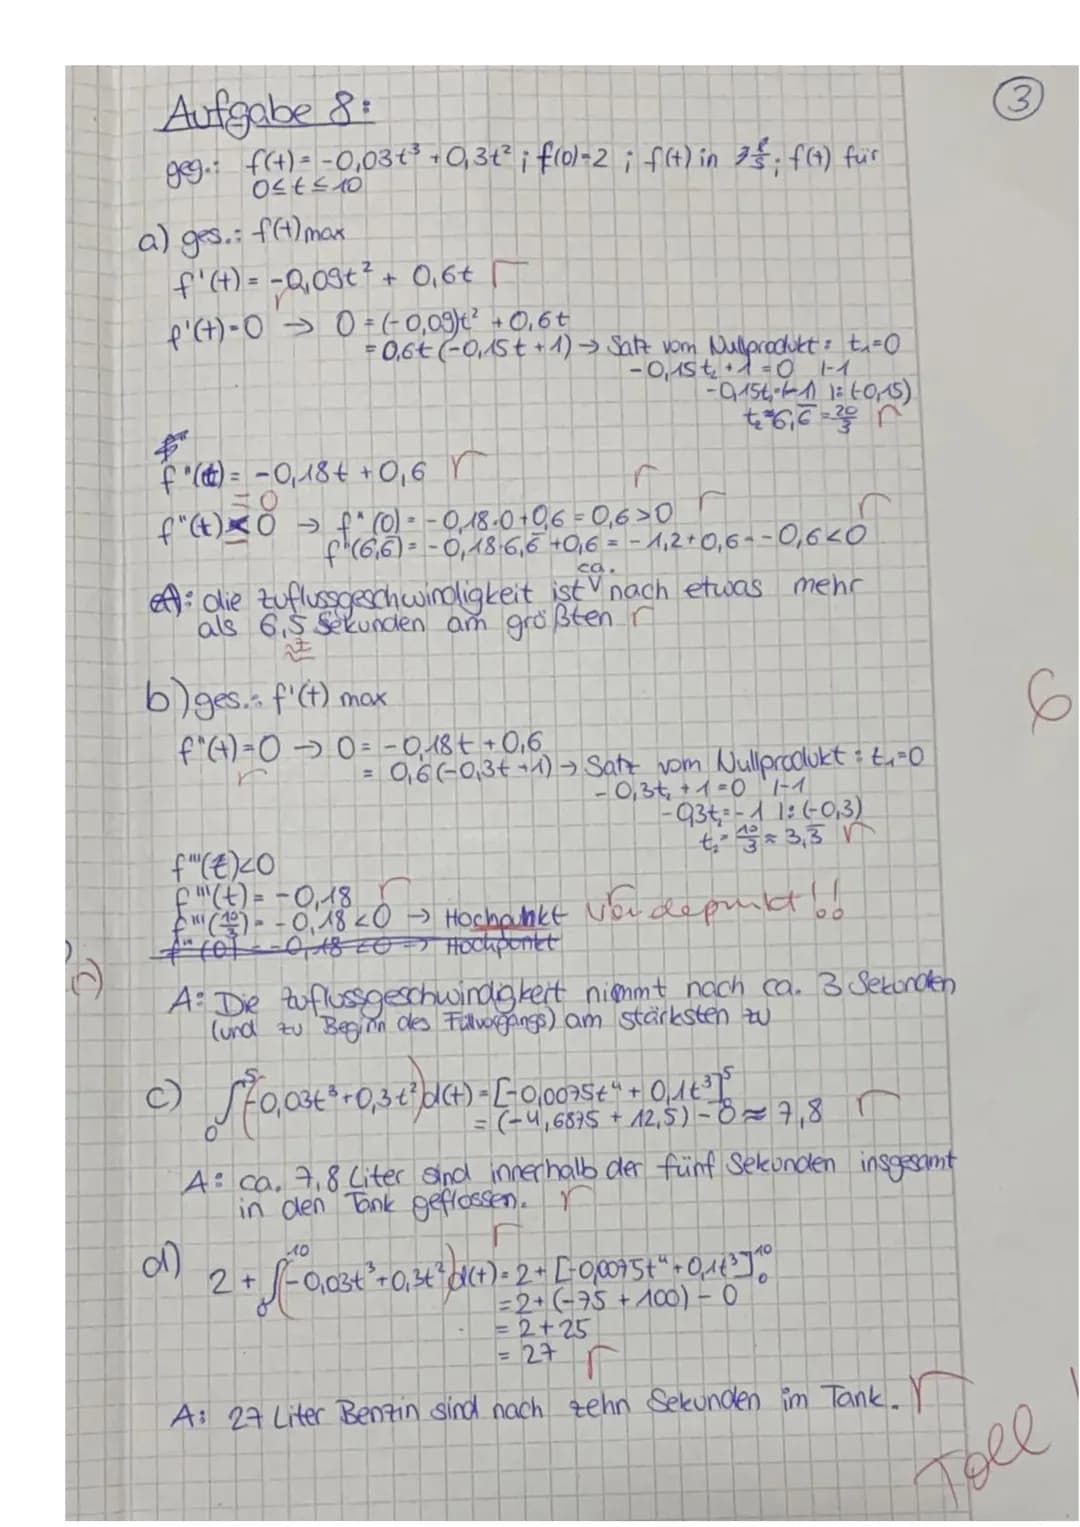 3
Aufgabe 8:
geg.: f(t) = -0,03t³ + 0,3t² ; f(0)=2 ; f(t) in ; f(t) für
0≤t≤10
a) ges.: f(t) max
f'(t) = -0,09t² + 0,6t r
f'(t)=0 → 0 = (-0,09)t² + 0,6t
= 0,6t (-0,15t + 1) → Satz vom Nullprodukt: t₁=0
-0,15t₂ + 1 = 0 |-1
-0,15t₂=(-1) |:(-0,15)
t₂=6,6̅ = 20/3 r
f"(t) = -0,18t + 0,6 r
= 0
f"(t) < 0 → f"(0) = -0,18·0+0,6 = 0,6 > 0
f"(6,6̅) = -0,18·6,6̅ + 0,6 = -1,2+0,6 = -0,6 < 0
ca.
A: die Zuflussgeschwindigkeit ist nach etwas mehr
als 6,5 Sekunden am größten r
b) ges.: f'(t) max
6
f"(t)=0 → 0 = -0,18t + 0,6
= 0,6(-0,3t + 1) → Satz vom Nullprodukt: t₁=0
-0,3t₂ + 1 = 0 |-1
-0,3t₂=-1 |:(-0,3)
t₂ = 10/3 ≈ 3,3̅ r
f'''(t)<0
f'''(t) = -0,18 r
f'''(10/3) = -0,18 < 0 → Hochpunkt Wendepunkt!!
f'''(0) = -0,18 < 0 → Hochpunkt
(r)
A: Die Zuflussgeschwindigkeit nimmt nach ca. 3 Sekunden
(und zu Beginn des Füllvorgangs) am stärksten zu
c) ∫₀⁵(-0,03t³+0,3t²)d(t) = [-0,0075t⁴ + 0,1t³]⁵
= (-4,6875 + 12,5) - 0 ≈ 7,8 r
A: ca. 7,8 Liter sind innerhalb der fünf Sekunden insgesamt
in den Tank geflossen. r
d) 2 + ∫₀¹⁰(-0,03t³+0,3t²)d(t) = 2 + [-0,0075t⁴ + 0,1t³]¹⁰₀
= 2 + (-75 + 100) - 0
= 2 + 25
= 27 r
A: 27 Liter Benzin sind nach zehn Sekunden im Tank. r
Toll